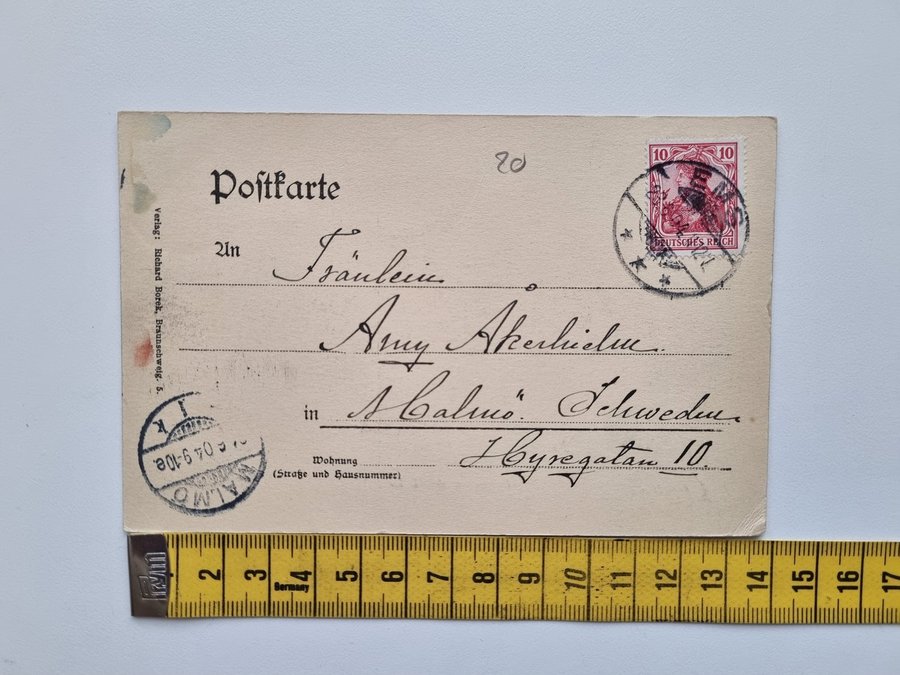 20
10 10
DEUTSCHES REICH
EMS
Postkarte
An Fräulein
Amy Åkerhielm
in Malmö. Schweden.
Wohnung
(Straße und Hausnummer)
Hyregatan 10
Verlag: Richard Borek, Braunschweig. 5.
MALMÖ
6 04 9-10e.
1 2 3 4 5 6 7 8 9 10 11 12 13 14 15 16 17
Germany